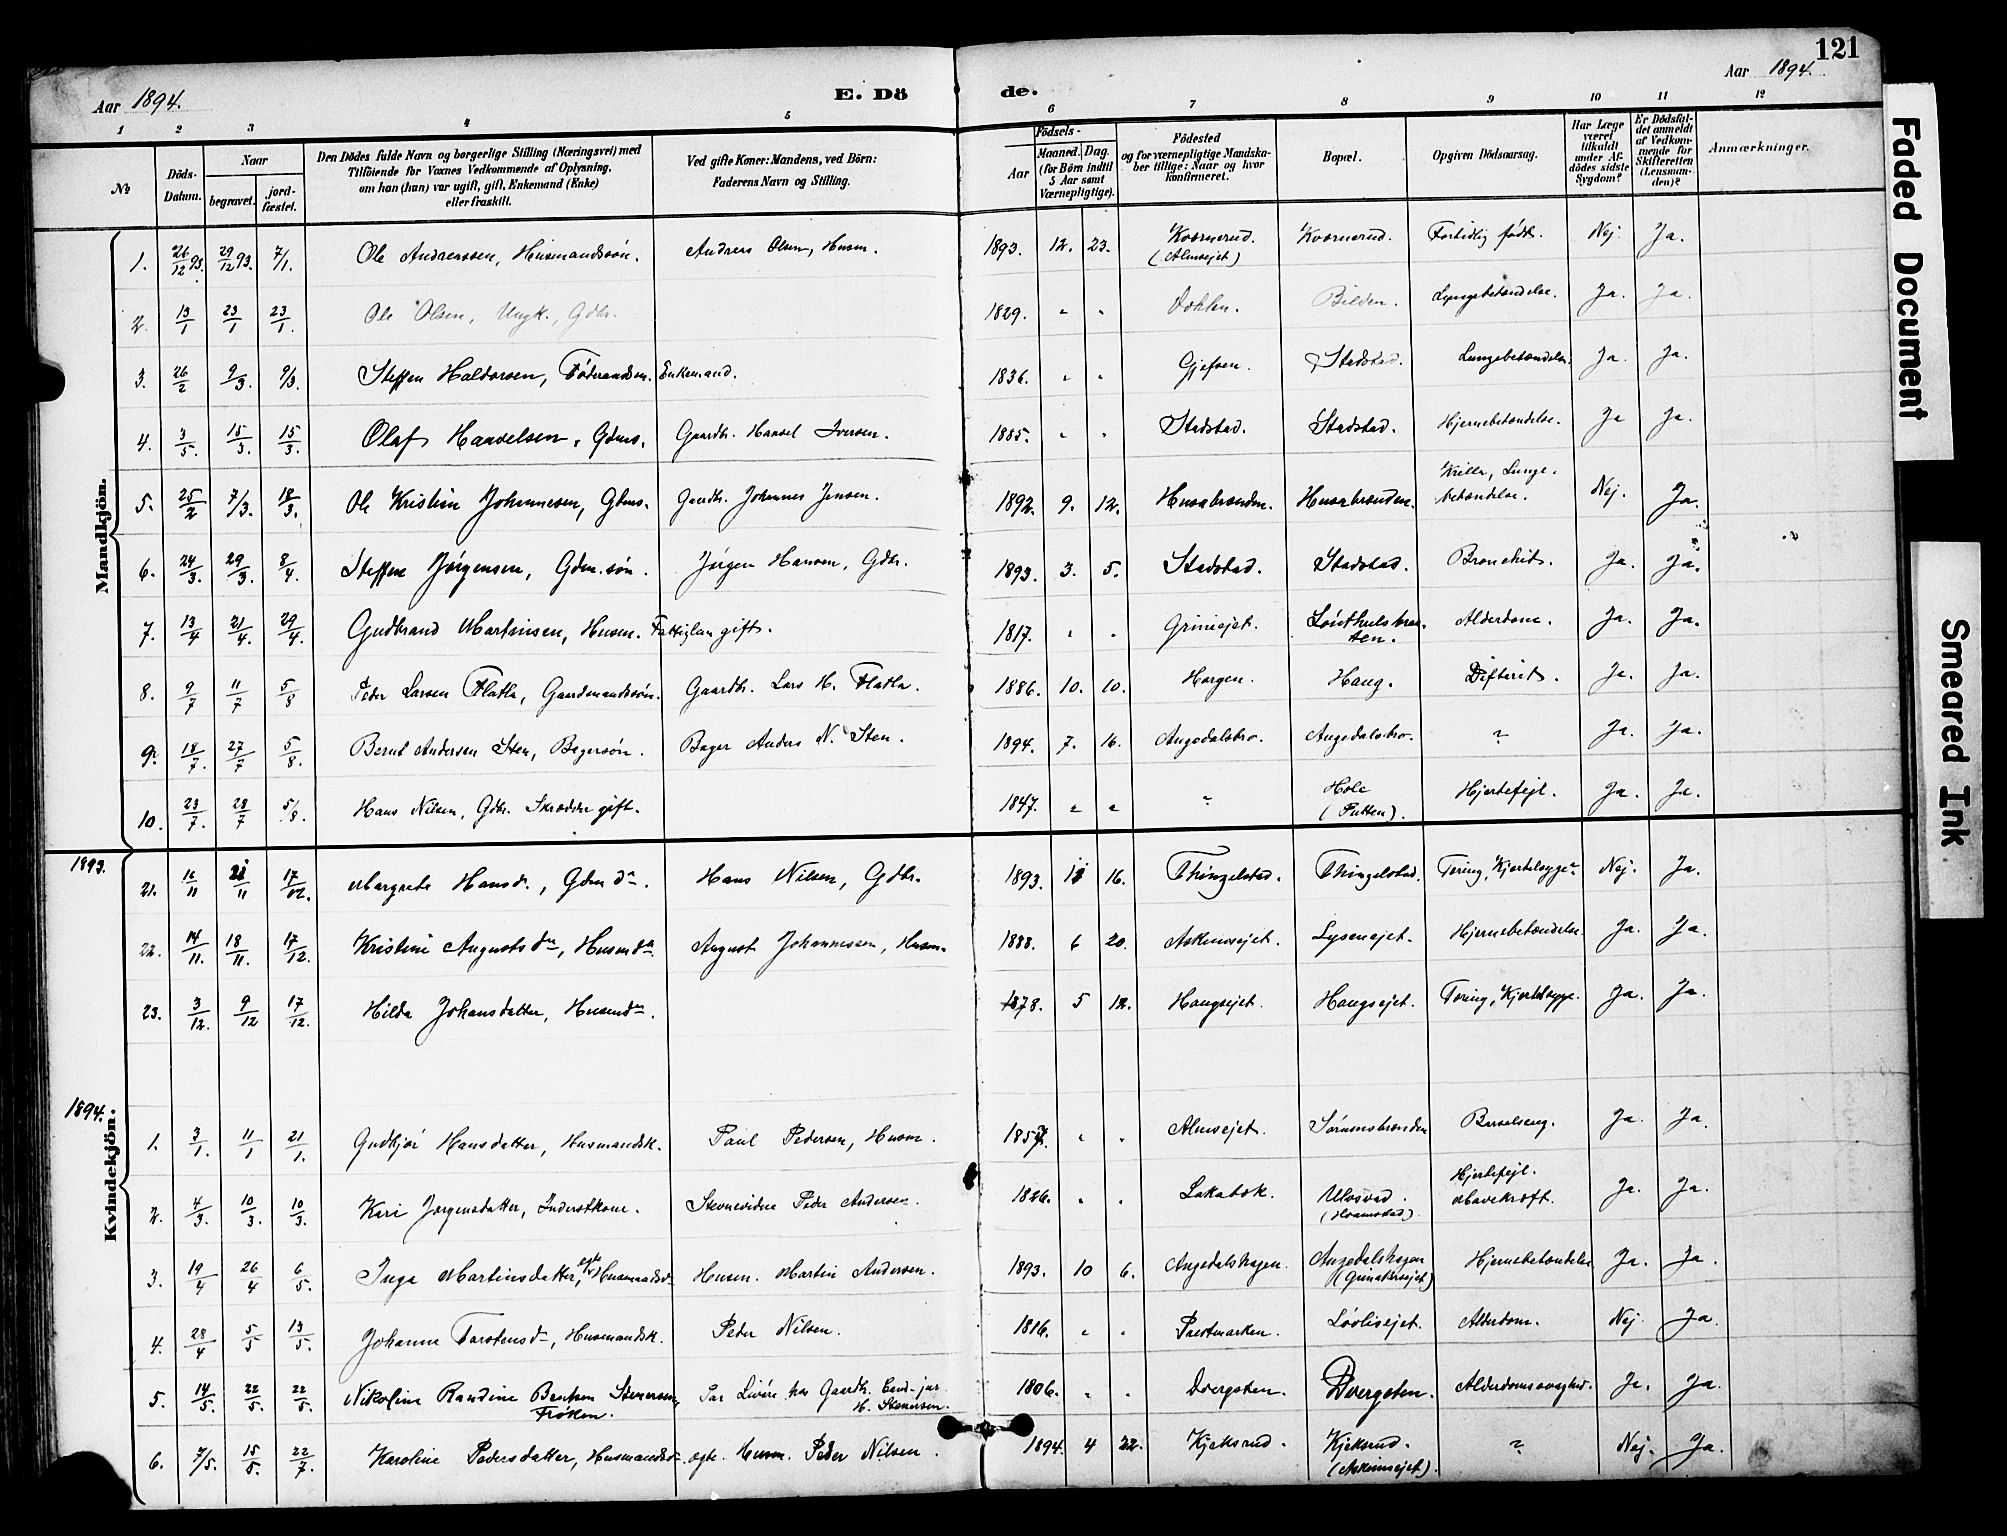 121
Aar 1894. E. Dö de. Aar 1894.
1 2 3 4 5 6 7 8 9 10 11 12
No
Döds-Datum.
Naar
begravet.
jord-fæstet.
Den Dödes fulde Navn og borgerlige Stilling (Næringsvei) med
Tilföiende for Voxnes Vedkommende af Oplysning,
om han (hun) var ugift, gift, Enkemand (Enke)
eller fraskilt.
Ved gifte Koner: Mandens, ved Börn:
Faderens Navn og Stilling.
Födsels-
Aar
Maaned. Dag.
(for Börn indtil
5 Aar samt
Værnepligtige).
Födested
og for værnepligtige Mandska-
ber tillige: Naar og hvor
konfirmeret.
Bopæl.
Opgiven Dödsaarsag.
Har Læge
været
tilkaldt
under Af-
dödes sidste
Sygdom?
Er Dödsfal-
det anmeldt
af Vedkom-
mende for
Skifteretten
(Lensman-
den)?
Anmærkninger.
Mandkjön.
1. 26/12 93. 29/12 93. 7/1. Ole Andreassen, Husmandssön. Andreas Olsen, Husm. 1893. 12. 23. Kværnerud. (Almsejet) Kværnerud. Fortidlig født. Nej. Ja.
2. 13/1 23/1 23/1. Ole Olsen, Ungk., Gdbr. 1829. " " Dohlen. Bilden. Lungebetændelse. Ja. Ja.
3. 26/2 9/3. 9/3. Steffen Haldorsen, Föderaadsm. Enkemand. 1836. " " Gjefsen. Stadstad. Lungebetændelse. Ja. Ja.
4. 3/5. 15/3. 15/3. Olaf Haavelsen, Gdms. Gaardbr. Haavel Iversen. 1885. " " Stadstad. Stadstad. Hjernebetændelse. Ja Ja.
5. 25/2 7/3. 18/3. Ole Kristian Johannesen, Gdms. Gaardbr. Johannes Jensen. 1892. 9. 12. Husabrænden. Husabrænden. Krilla, Lunge-
betændelse. Nej. Ja.
6. 24/3. 29/3. 8/4. Steffen Jörgensen, Gdm.sön. Jörgen Hansen, Gdbr. 1893. 3. 5. Stadstad. Stadstad. Bronchit. Ja. Ja.
7. 13/4 21/4. 29/4. Gudbrand Martinsen, Husm. Fattiglem gift. 1817. " " Griniejet. Alderdom. Ja. Ja.
8. 9/7 11/7 5/8 Peder Larsen Flatla, Gaardmandssön. Gaardbr. Lars H. Flatla. 1886. 10. 10. Horgen. Haug. Difterit. Ja. Ja.
9. 18/7. 27/7 5/8. Bernt Andersen Sten, Bagersön. Bager Anders N. Sten. 1894. 7. 16. Augedalsbro. Augedalsbro. " Ja. Ja.
10. 23/7. 28/7 5/8. Hans Nilsen, Gdbr. Skrædder gift. 1847. " " " Hole (Putten). Hjertefejl. Ja. Ja.
1893.
21. 16/11 21/11 17/12. Margrete Hansd., Gdm dr. Hans Nilsen, Gdbr. 1893. 16. Thingelstad. Thingelstad. Tæring, Kjertelsyge. Nej. Ja.
22. 14/11. 18/11. 17/12. Kristine Augusts dr, Husm dr. August Johannessen, Husm. 1888. 6 20. Askimsejet. Lysenejet. Hjernebetændelse. Ja. Ja.
23. 3/12. 9/12 17/12. Hilda Johansdatter, Husmdr. 1878. 5 12. Haugsejet. Haugsejet. Tæring, Kjertelsyge. Ja. Ja.
1894.
Kvindekjön.
1. 3/1. 11/1 21/1. Gudbjör Hansdatter, Husmandsk. Paul Pedersen, Husm. Almsejet. Sörumsbrænden Barselseng. Ja. Ja.
2. 4/3. 10/3. 10/3. Kari Jörgensdatter, Inderstkone. Stevnevidne Peder Andersen. 1826. " " Lakabok. Ulvsvad. (Hvamstad) Hjertefejl.
Mavekræft. Ja. Ja.
3. 19/4 26/4 6/5. Inga Martinsdatter, egte Husmandsd. Husm. Martin Andersen. 1893. 10 6. Augedalshagen. Augedalshagen Hjernebetændelse Ja. Ja.
4. 28/4 5/5 13/5. Johanne Torstensd, Husmandsk. Peder Nilsen. 1816. " " Præstmarken. Lövlisejet. Alderdom. Nej. Ja.
5. 14/5. 22/5. 22/5. Nikoline Randine Stenersen, Fröken. H. Stenersen. 1806. " " Dvergsten. Dvergsten. Alderdomssvaghed. Ja. Ja.
6. 7/5. 15/5. 22/7. Karoline Pedersdatter, Husmandsd. egte. Husm. Peder Nilsen. 1894. 4 22. Kjeksrud. Kjeksrud. (Askimsejet). " Nej. Ja.
Faded Document
Smeared Ink